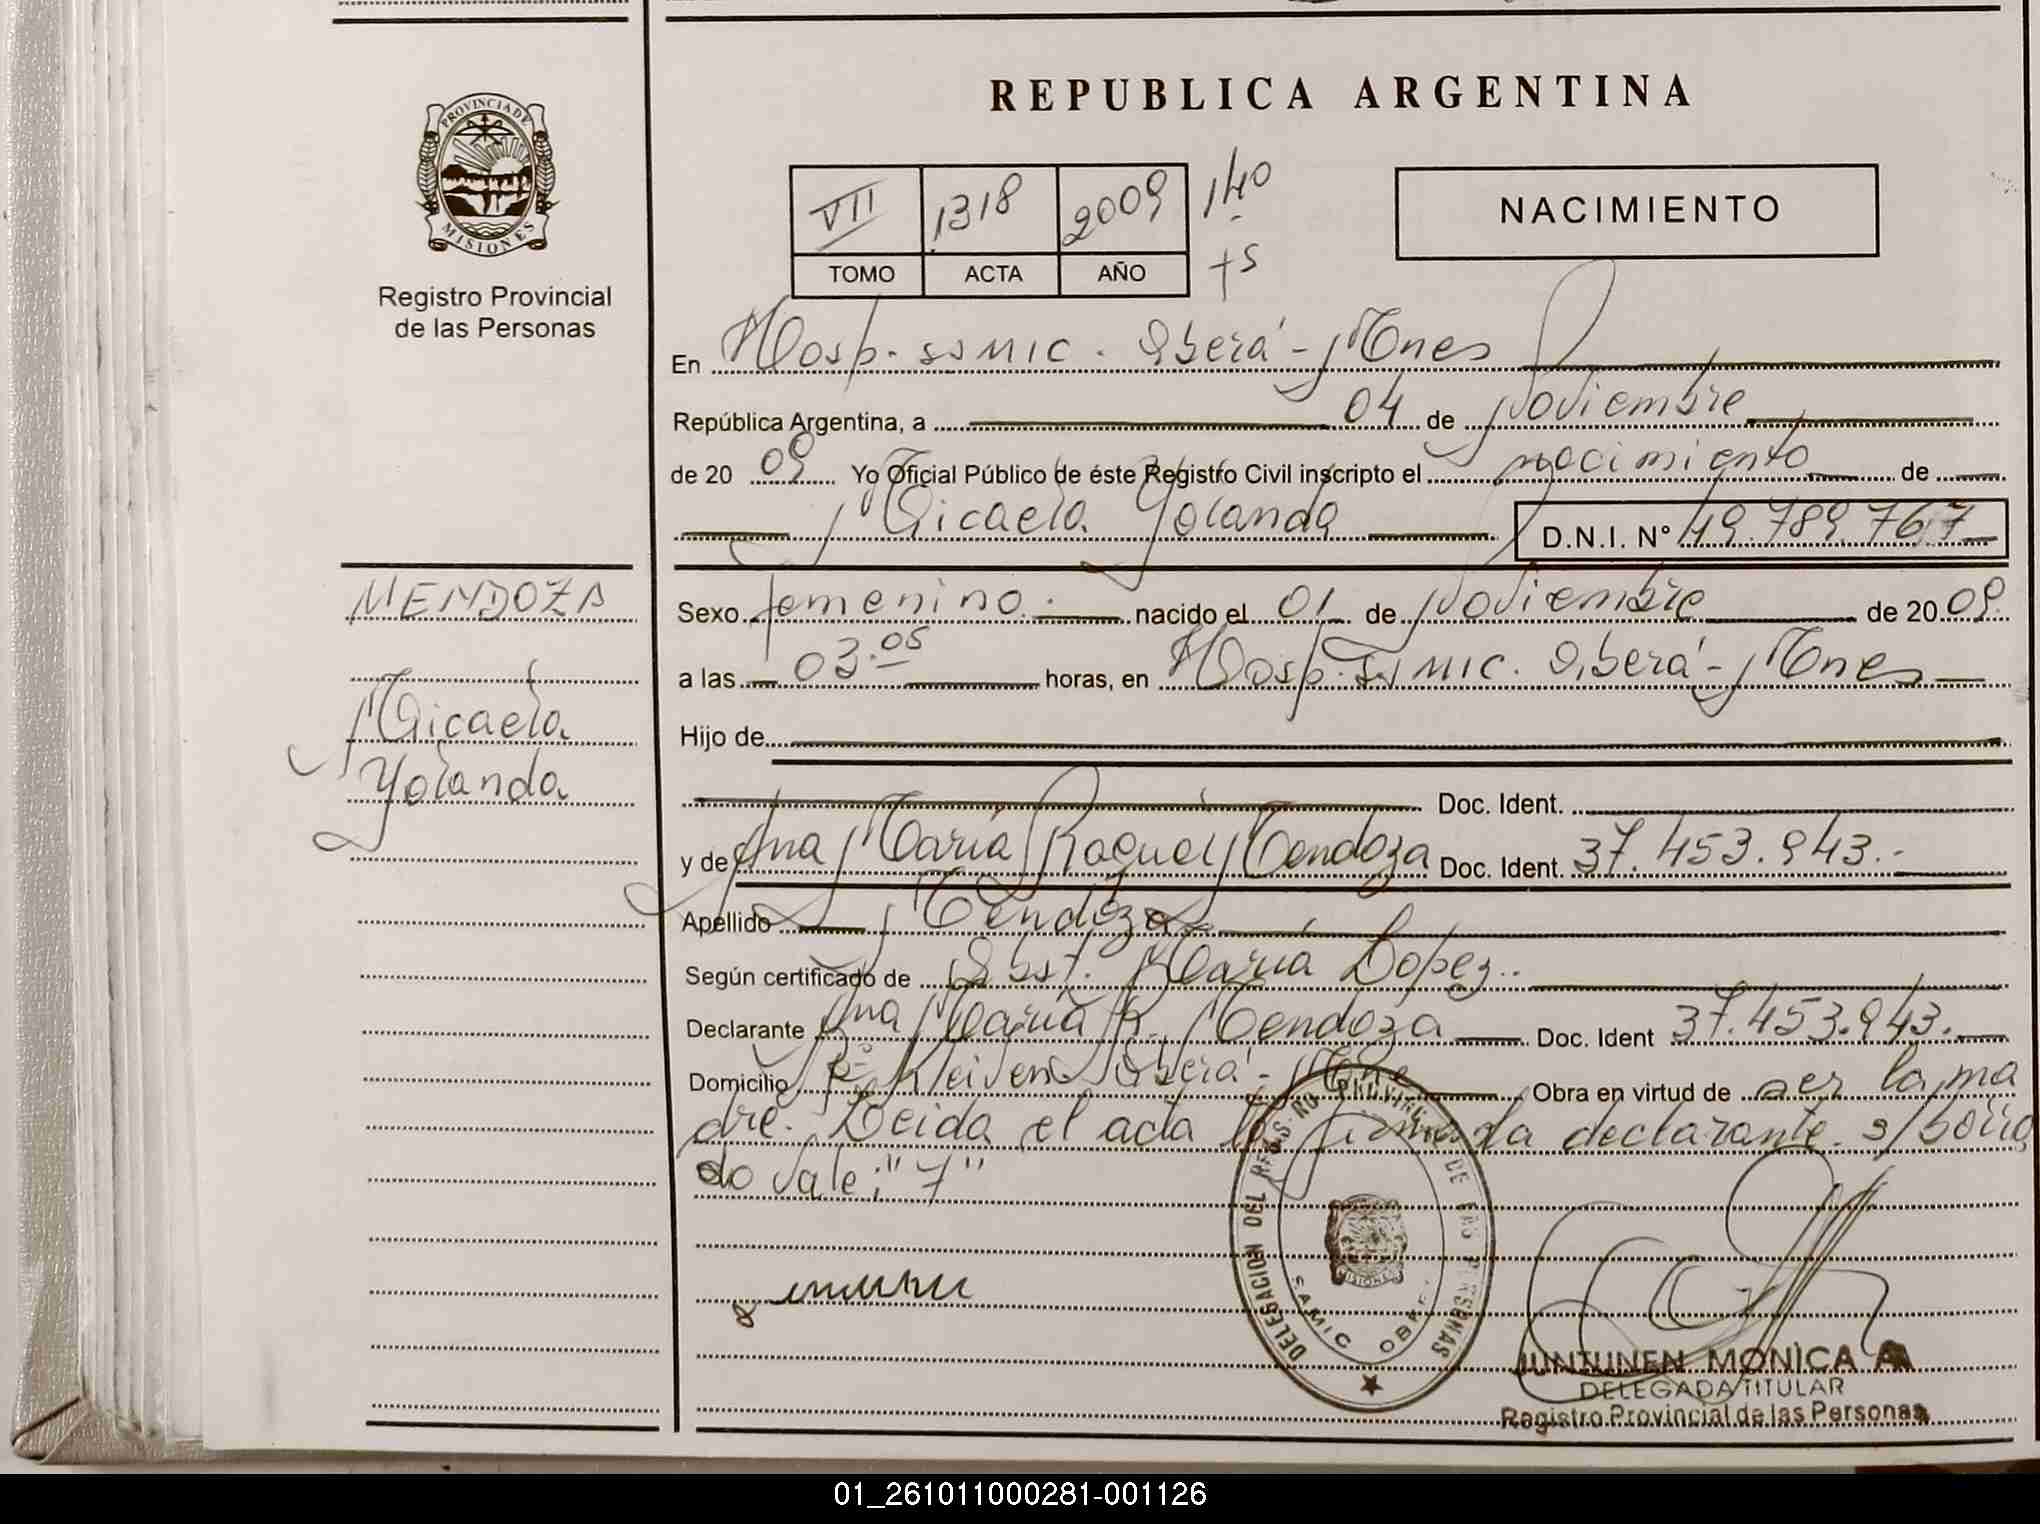 REPUBLICA ARGENTINA
PROVINCIA DE
MISIONES
Registro Provincial
de las Personas
VII 1318 2009 140
TOMO ACTA AÑO +s
NACIMIENTO
En Hosp. ssmic. Oberá - Mnes
República Argentina, a 04 de Noviembre
de 20 09 Yo Oficial Público de éste Registro Civil inscripto el nacimiento de
Micaela Yolanda D.N.I. Nº 49.789.767
MENDOZA
Micaela
Yolanda
Sexo femenino. nacido el 01 de Noviembre de 20 09.
a las 03.05 horas, en Hosp. ssmic. Oberá - Mnes
Hijo de
Doc. Ident.
y de Ana María Raquel Mendoza Doc. Ident. 37.453.943.-
Apellido Mendoza
Según certificado de Obst. María Lopez..
Declarante Ana María R. Mendoza Doc. Ident 37.453.943.
Domicilio Bº Oberá - Mne Obra en virtud de ser la ma
dre. Leida el acta la firma la declarante. s/borra
do vale: "7"
DELEGACION DEL REGISTRO PROVINCIAL DE LAS PERSONAS
SAMIC OBERA
MISIONES
JUNTUNEN MONICA A
DELEGADA TITULAR
Registro Provincial de las Personas
01_261011000281-001126